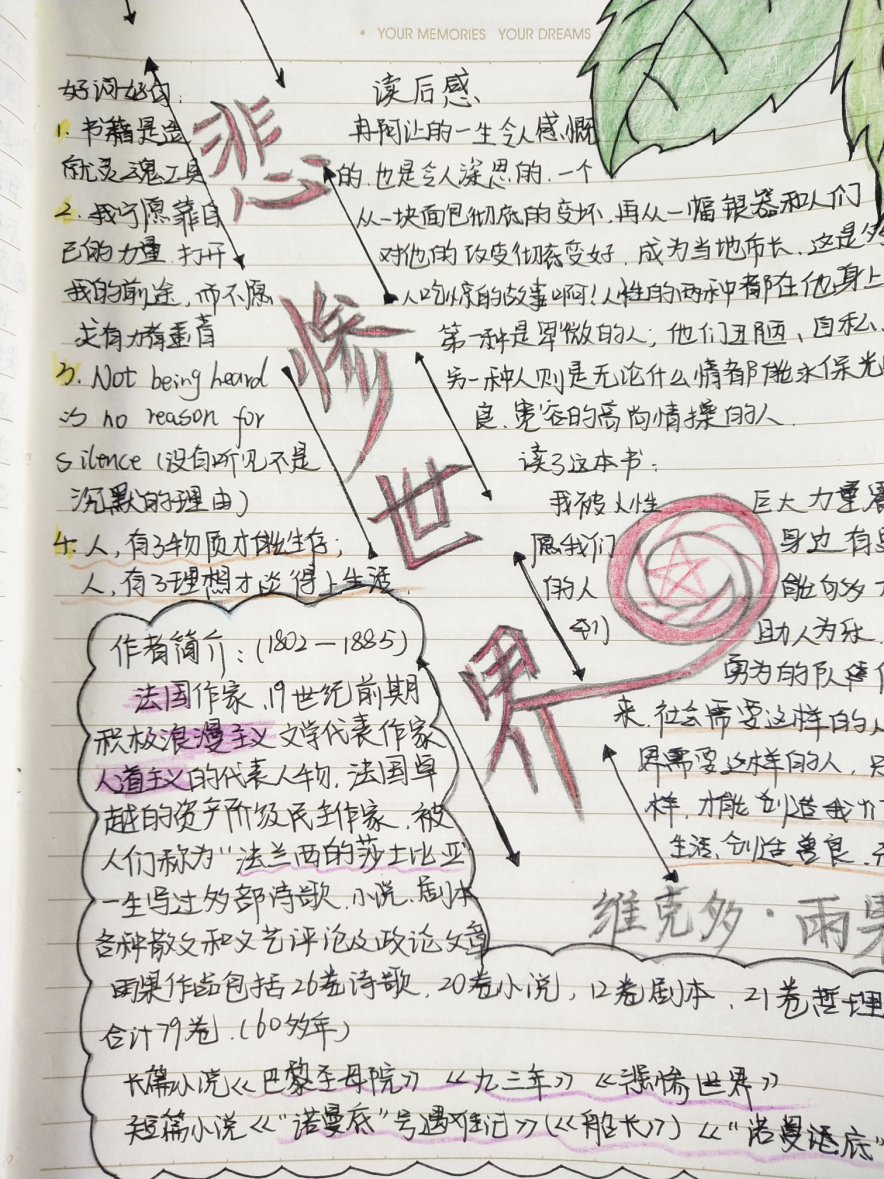 YOUR MEMORIES YOUR DREAMS
好词好句:
1. 书籍是造
就灵魂工具
2. 我宁愿靠自
己的力量 打开
我的前途, 而不愿
求有力者垂青
3. Not being heard
is no reason for
silence (没有听见不是
沉默的理由)
4. 人, 有了物质才能生存;
人, 有了理想才谈得上生活.
悲
惨
世
界
读后感
冉阿让的一生令人感慨
的. 也是令人深思的. 一个
从一块面包彻底的变坏. 再从一幅银器和人们
对他的改变彻底变好. 成为当地市长. 这是
人吃惊的故事啊! 人性的两种都在他身上
第一种是卑微的人; 他们丑陋、自私、
另一种人则是无论什么情都能永保光
良. 宽容的高尚情操的人.
读了这本书:
我被人性 巨大力量
愿我们 身边有
的人 能向
们 助人为乐.
勇为的队伍
来. 社会需要这样的人
界需要这样的人,
样, 才能创造我们
生活, 创造善良.
维克多·雨果
作者简介: (1802-1885)
法国作家. 19世纪前期
积极浪漫主义文学代表作家
人道主义的代表人物. 法国卓
越的资产阶级民主作家. 被
人们称为"法兰西的莎士比亚
一生写过多部诗歌. 小说. 剧本
各种散文和文艺评论及政论文章
雨果作品包括26卷诗歌. 20卷小说, 12卷剧本. 21卷哲理
合计79卷. (60多年)
长篇小说《巴黎圣母院》《九三年》《悲惨世界》
短篇小说《"诺曼底"号遇难记》(《船长》)《"诺曼